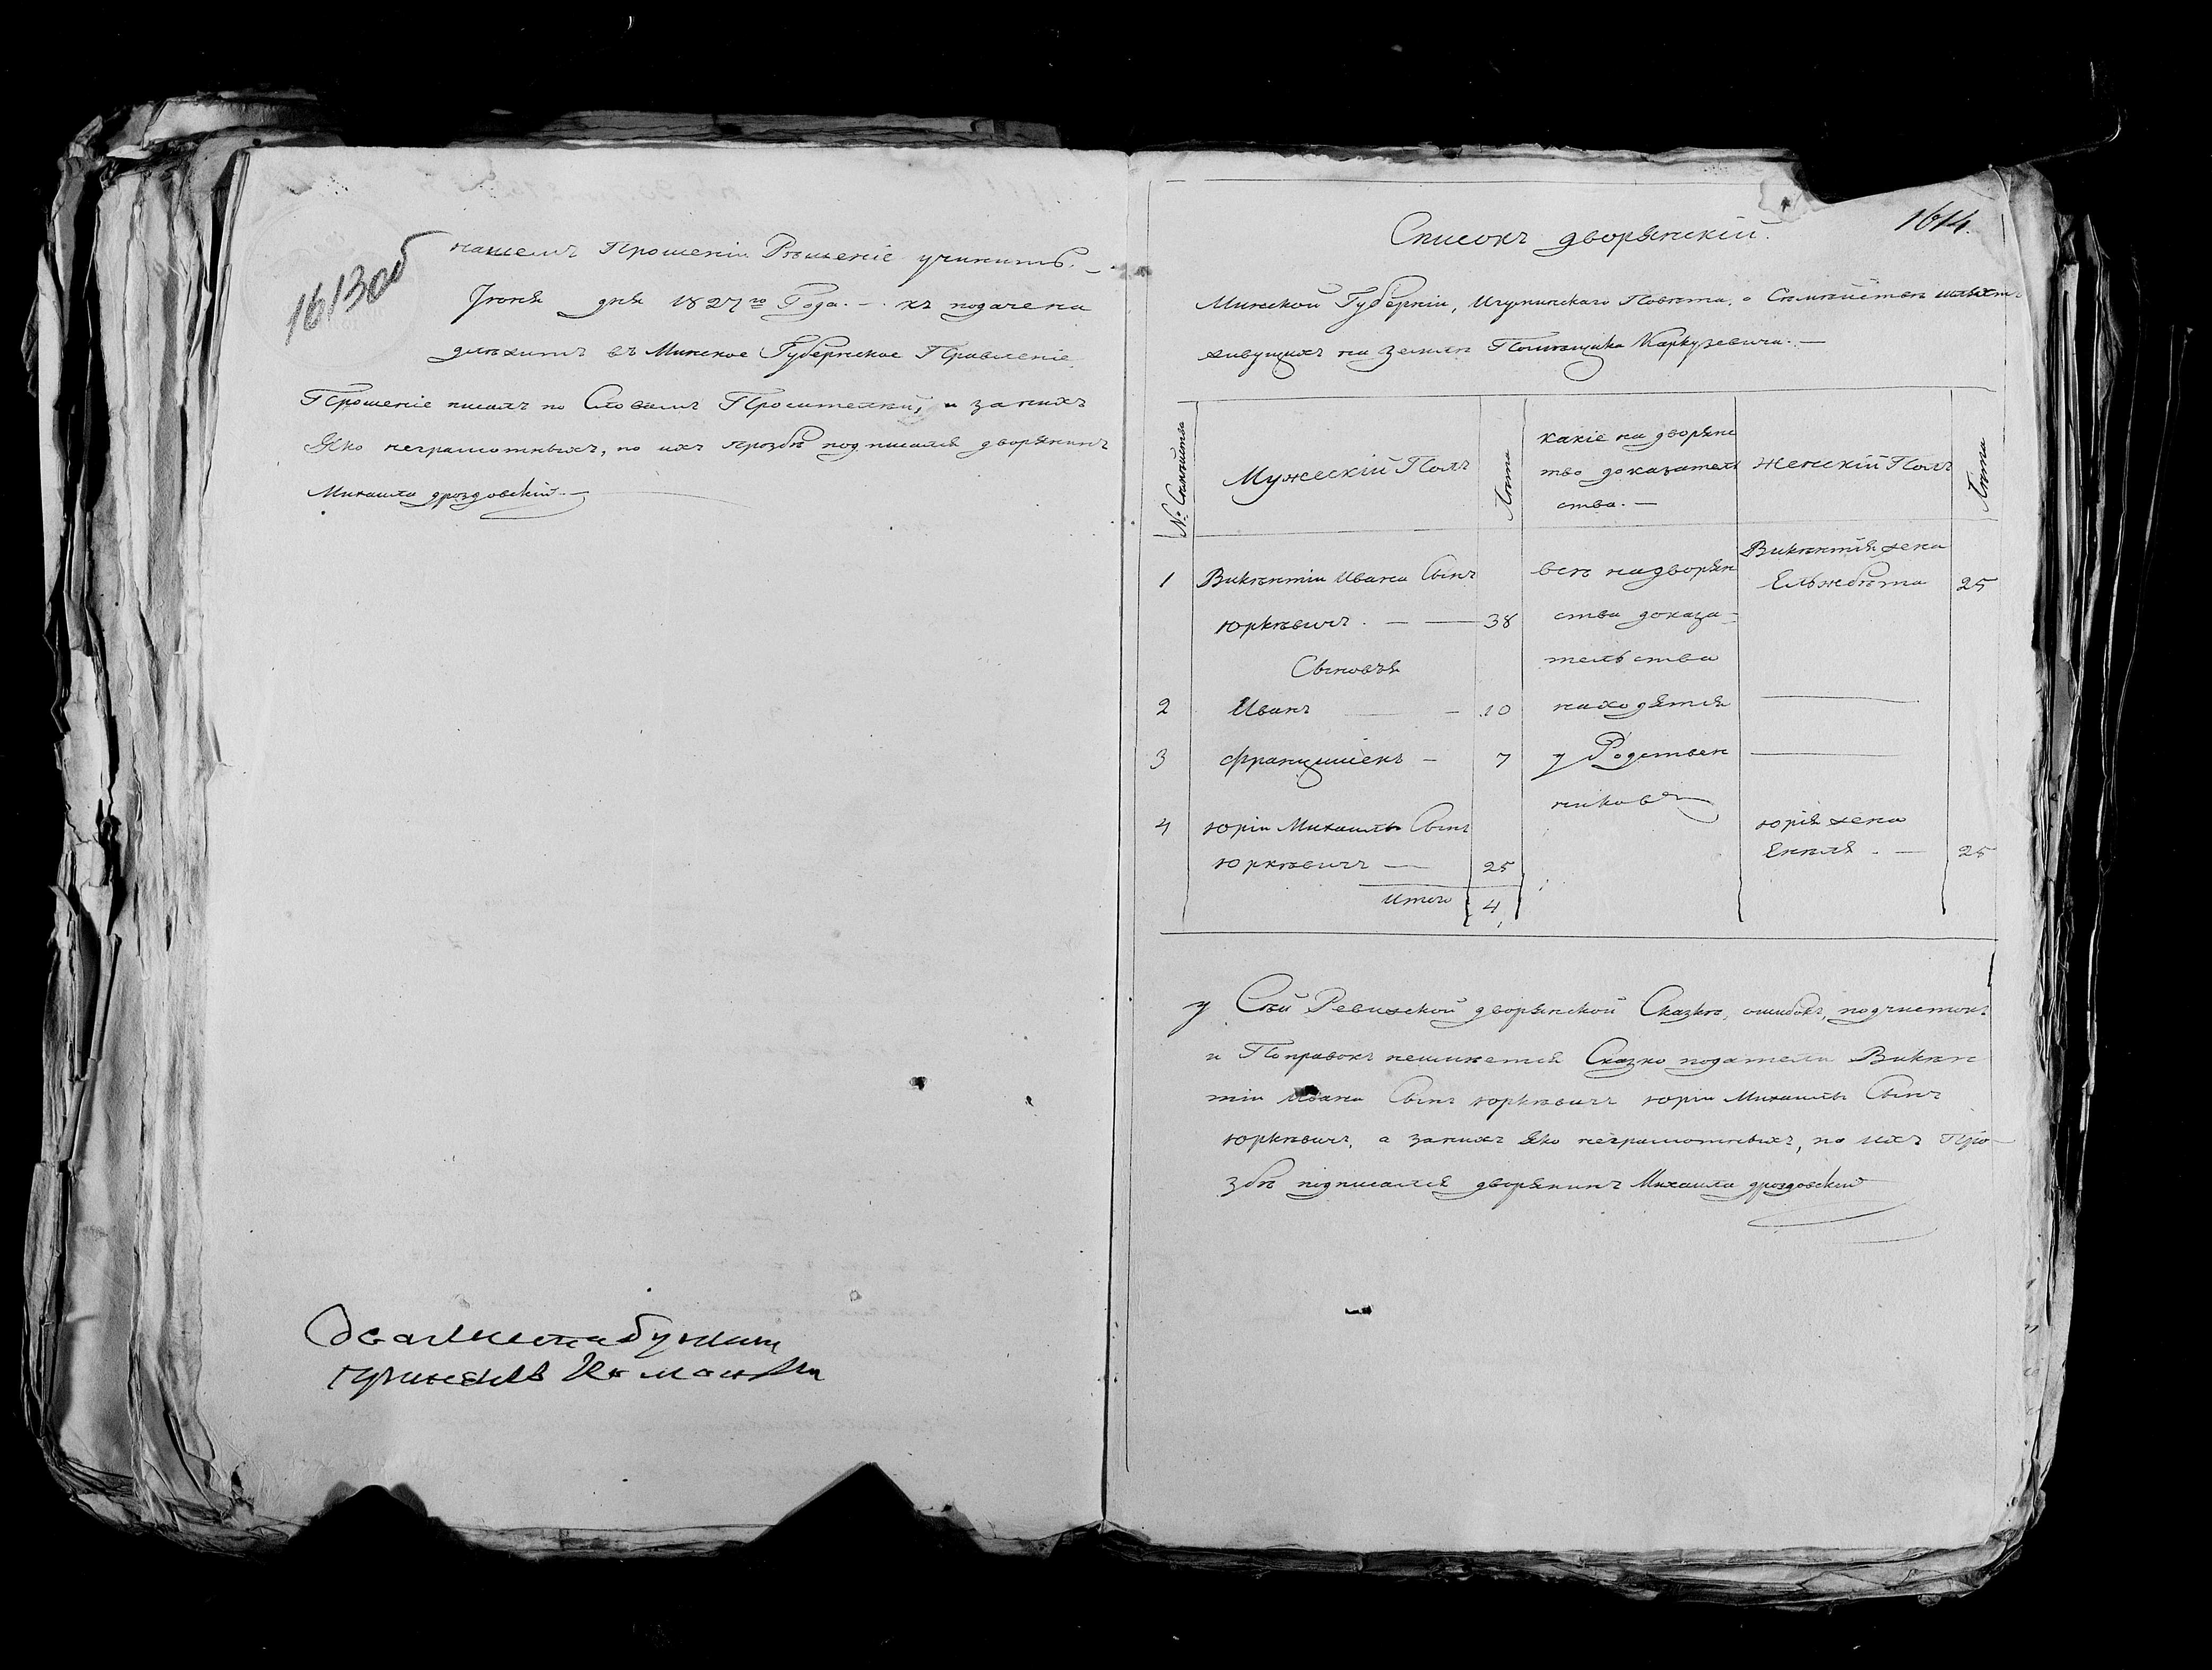 1613 об
нашемъ Прошеніи Рѣшеніе учинить. —
Іюня дня 1827го Года. — къ подачена
длѣжитъ въ Минское Губернское Правленіе
Прошеніе писалъ по Словамъ Просителей, и занихъ
Яко неграмотныхъ, по ихъ прозбѣ подписался дворянинъ
Михаила дроздовскій —
1614.
Списокъ дворянскій.
Минской Губерніи, Игуминскаго Повѣта, о Сѣмѣйствѣ шляхтъ
живущихъ на Землѣ Помѣщика Каркузевича. —
№ Сѣмѣйства
Мужескій Полъ
Лѣта
какіе на дворянс
тво доказатель
ства. —
Женскій Полъ
Лѣта
1 Викѣнтіи Ивана Сынъ
юркѣвичъ. — — 38
всѣ надворян
ства доказа-
тельства
находятся
у Родствен
никовъ
Викѣнтія жена
Ельжбѣта 25
Сыновъя
2 Иванъ — 10
3 Францишекъ — 7
4 юріи Михаилы Сынъ
юркѣвичъ — 25
юрія жена
Янѣля. — 25
Итого 4
у Сѣй Ревижской дворянской Сказкѣ, ошибокъ, подчистокъ
и Поправокъ неимѣется Сказко податели Викѣн
тіи Ивана Сынъ юркѣвичъ юріи Михаилы Сынъ
юркѣвичъ, а занихъ Яко неграмотныхъ, по ихъ Про-
збѣ подписался дворянинъ Михаила дроздовскій